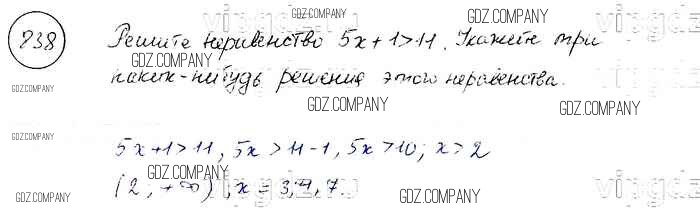 GDZ.COMPANY
238 Решите неравенство 5x+1>11. Укажите три
GDZ.COMPANY
GDZ.COMPANY
какие-нибудь решения этого неравенства.
GDZ.COMPANY
GDZ.COMPANY
GDZ.COMPANY
GDZ.COMPANY
GDZ.COMPANY
5x+1>11, 5x>11-1, 5x>10; x>2
GDZ.COMPANY
(2; +∞), x = 3,4,7.
GDZ.COMPANY
GDZ.COMPANY